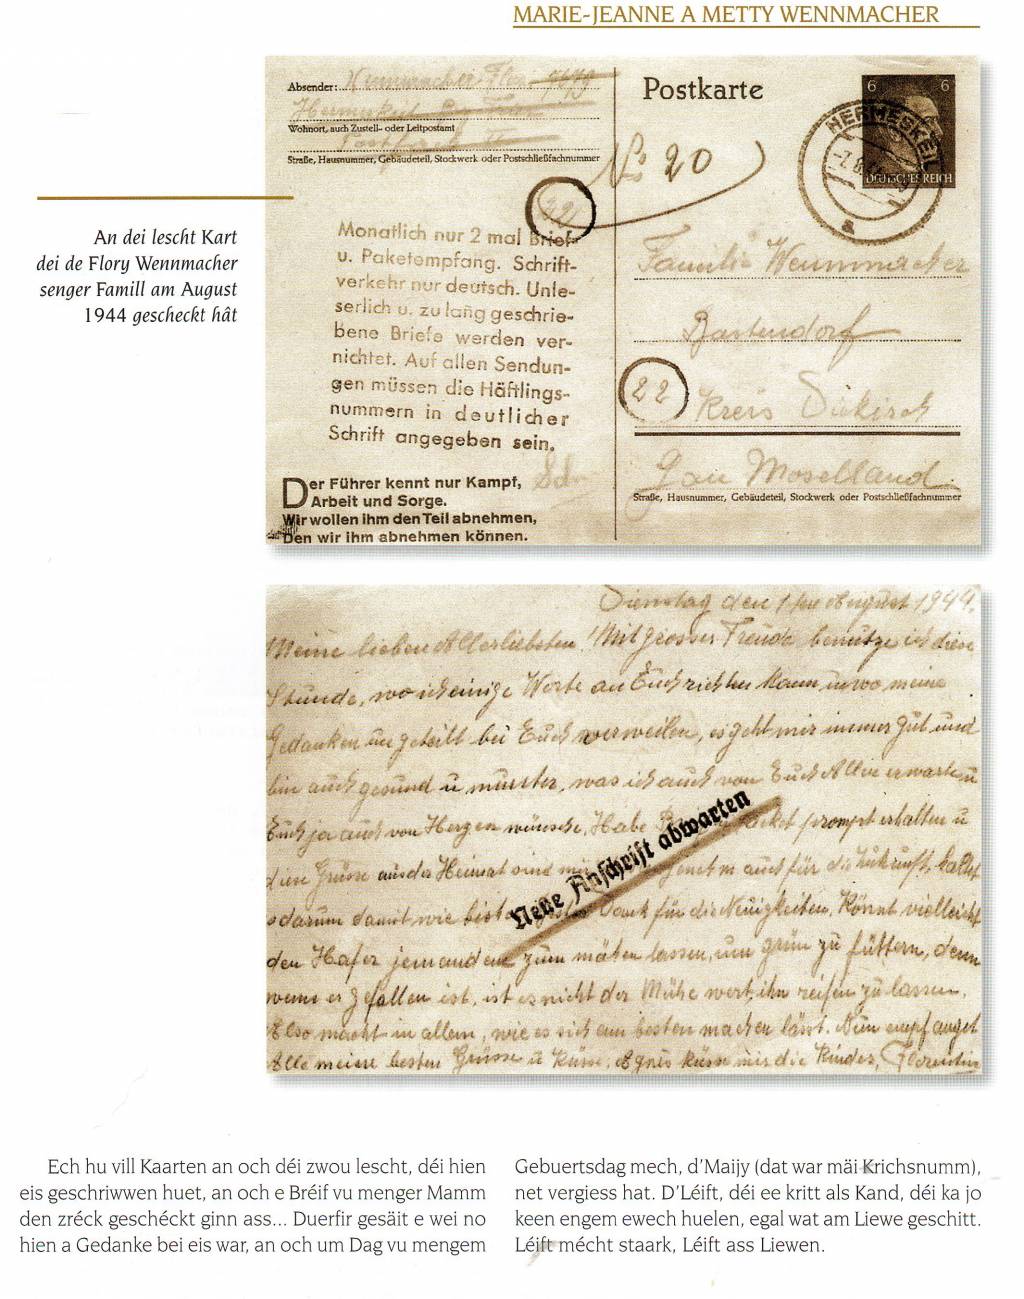 MARIE-JEANNE A METTY WENNMACHER
An dei lescht Kart
dei de Flory Wennmacher
senger Famill am August
1944 gescheckt hât
Absender: Wennmacher
Wohnort, auch Zustell- oder Leitpostamt
Straße, Hausnummer, Gebäudeteil, Stockwerk oder Postschließfachnummer
Postkarte
6 6
DEUTSCHES REICH
HERMESKEIL
a
20
Monatlich nur 2 mal Brief-
u. Paketempfang. Schrift-
verkehr nur deutsch. Unle-
serlich u. zu lang geschrie-
bene Briefe werden ver-
nichtet. Auf allen Sendun-
gen müssen die Häftlings-
nummern in deutlicher
Schrift angegeben sein.
Der Führer kennt nur Kampf,
Arbeit und Sorge.
Wir wollen ihm den Teil abnehmen,
Den wir ihm abnehmen können.
Familie Wennmacher
Bastendorf
22
Kreis Diekirch
Gau Moselland.
Straße, Hausnummer, Gebäudeteil, Stockwerk oder Postschließfachnummer
Dienstag den August 1944.
Meine lieben Allerliebsten! Mit grosser Freude benutze ich diese
Stunde, wo ich einige Worte an Euch richten kann u wo meine
Gedanken ungeteilt bei Euch verweilen, es geht mir immer gut und
bin auch gesund u munter, was ich auch von Euch Alle erwarte u
Euch ja auch von Herzen wünsche. Habe prompt erhalten u
diese Grüsse aus der Heimat sind auch für die Zukunft,
darum damit wie Dank für die Neuigkeiten. Könnt vielleicht
den Hafer jemandem zum mähen lassen, um grün zu füttern, denn
wenn er gefallen ist, ist es nicht der Mühe wert, ihn reifen zu lassen.
Also macht in allem, wie es sich am besten machen lässt. Nun empfanget
Alle meine besten Grüsse u Küsse, Agnes küsse mir die Kinder,
Neue Anschrift abwarten
Ech hu vill Kaarten an och déi zwou lescht, déi hien
eis geschriwwen huet, an och e Bréif vu menger Mamm
den zréck geschéckt ginn ass... Duerfir gesäit e wei no
hien a Gedanke bei eis war, an och um Dag vu mengem
Gebuertsdag mech, d'Maijy (dat war mäi Krichsnumm),
net vergiess hat. D'Léift, déi ee kritt als Kand, déi ka jo
keen engem ewech huelen, egal wat am Liewe geschitt.
Léift mécht staark, Léift ass Liewen.